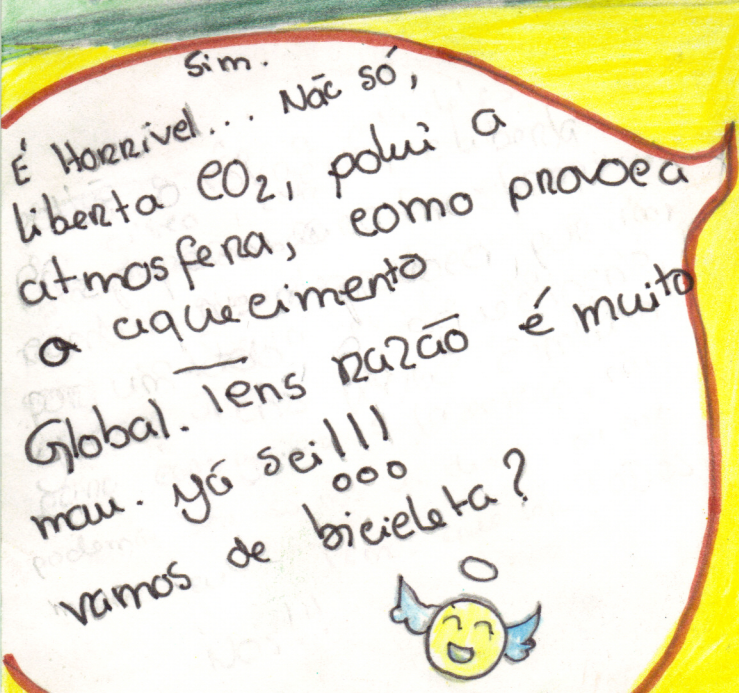 Sim.
É Horrível... Não só,
liberta CO2, polui a
atmosfera, como provoca
o aquecimento
Global. Tens razão é muito
mau. Já sei!!!
vamos de bicicleta?